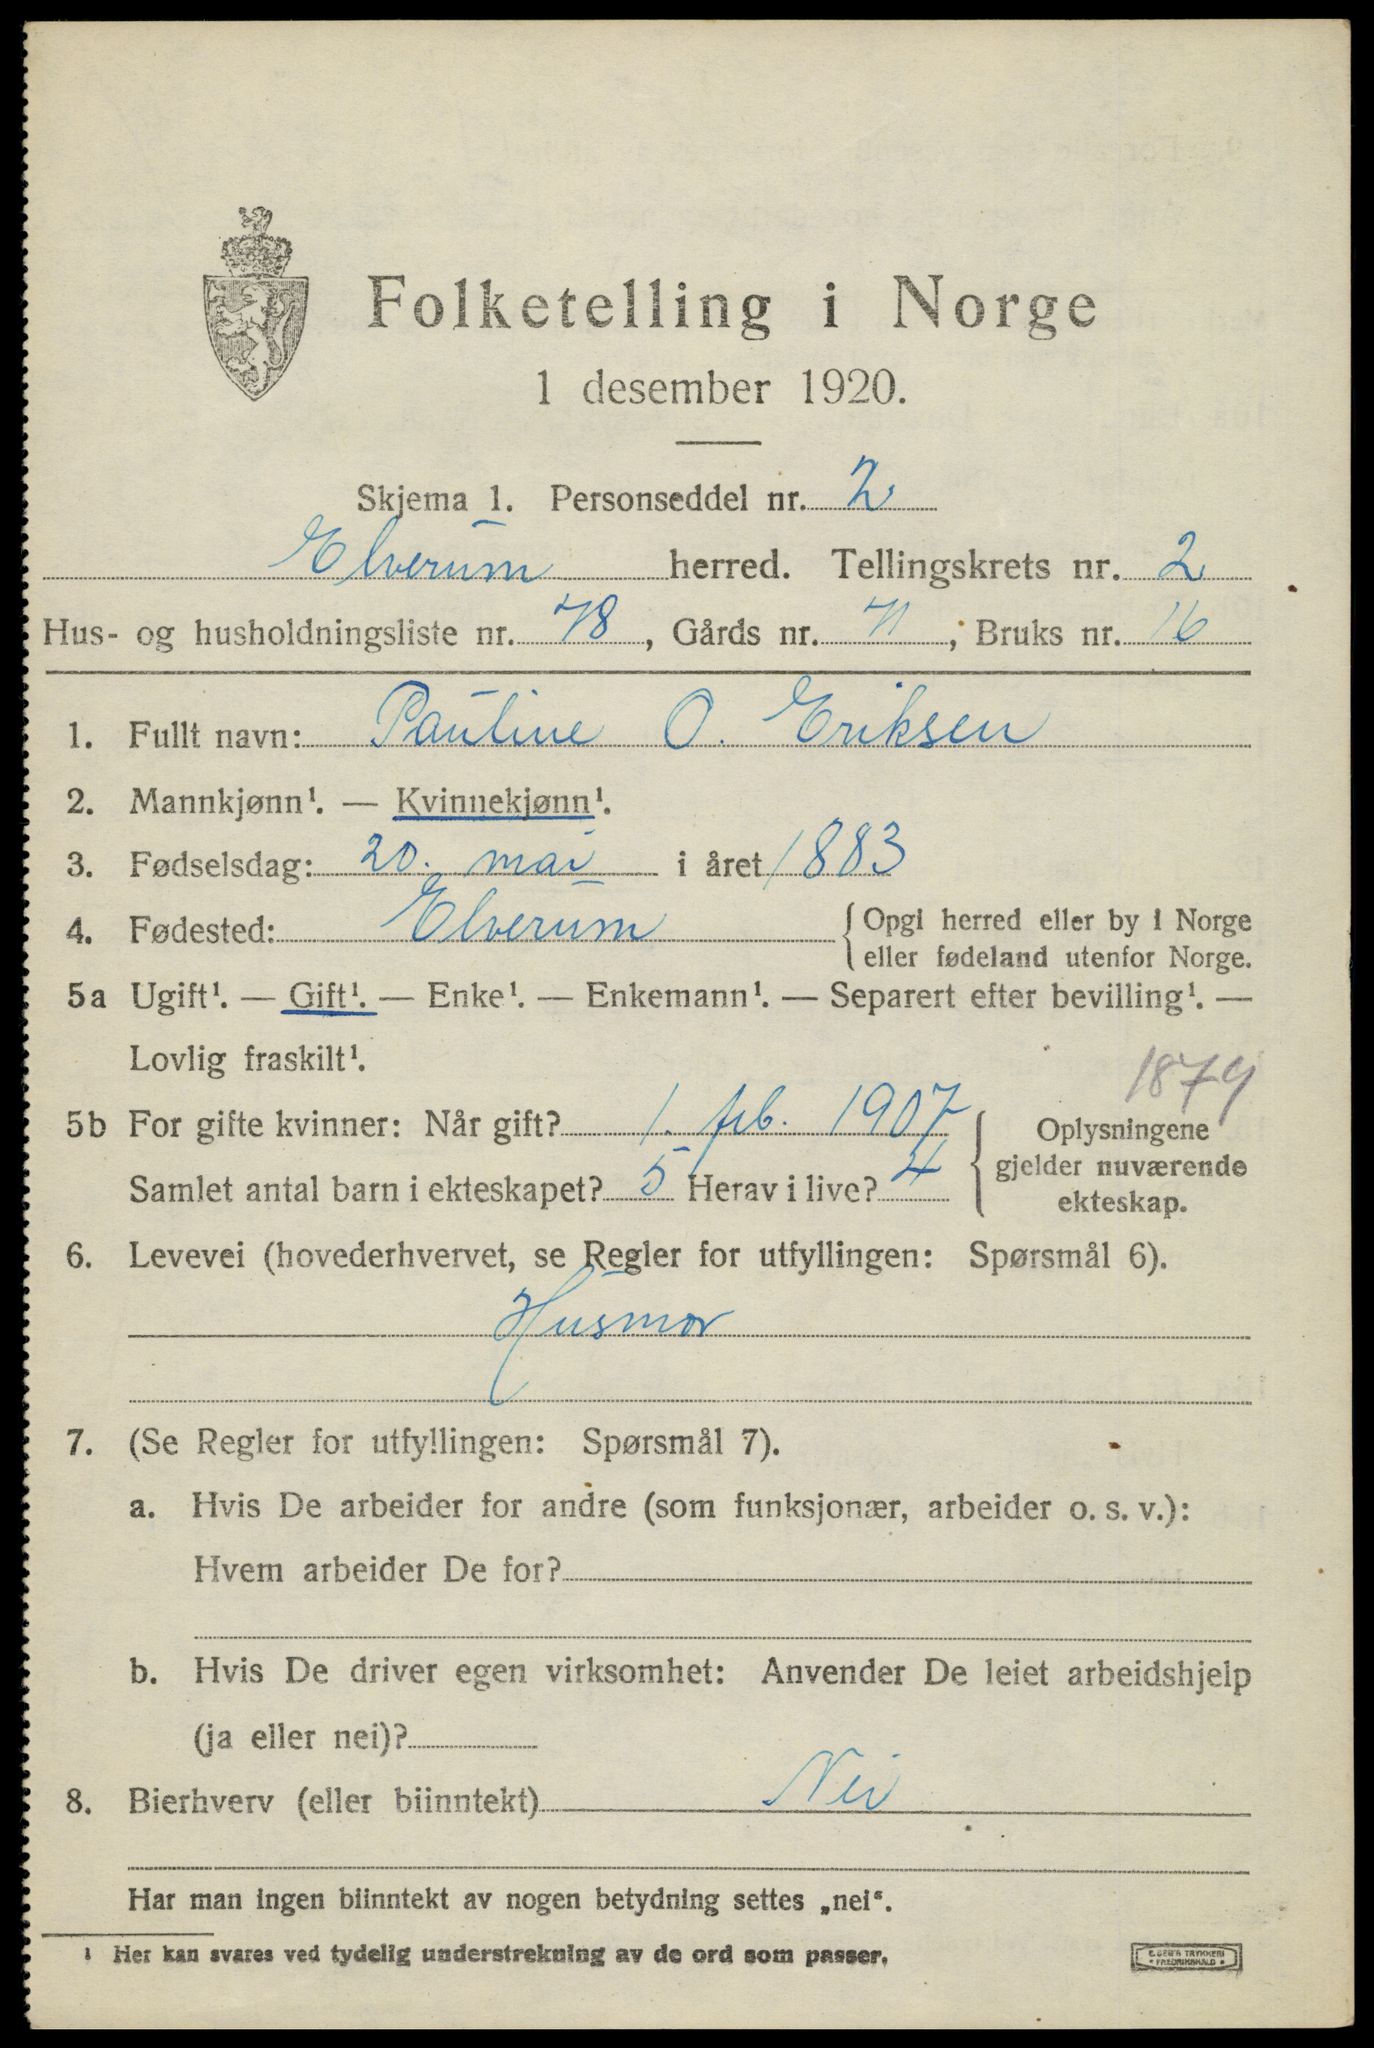 Folketelling i Norge
1 desember 1920.
Skjema 1. Personseddel nr. 2
Elverum herred. Tellingskrets nr. 2
Hus- og husholdningsliste nr. 78, Gårds nr. 71, Bruks nr. 16
1. Fullt navn: Pauline O. Eriksen
2. Mannkjønn¹. — Kvinnekjønn¹.
3. Fødselsdag: 20. mai i året 1883
4. Fødested: Elverum { Opgi herred eller by i Norge
eller fødeland utenfor Norge.
5a Ugift¹. — Gift¹. — Enke¹. — Enkemann¹. — Separert efter bevilling¹. —
Lovlig fraskilt¹.
1879
5b For gifte kvinner: Når gift? 1. feb. 1907
Samlet antal barn i ekteskapet? 5 Herav i live? 4
{ Oplysningene
gjelder nuværende
ekteskap.
6. Levevei (hovederhvervet, se Regler for utfyllingen: Spørsmål 6).
Husmor
7. (Se Regler for utfyllingen: Spørsmål 7).
a. Hvis De arbeider for andre (som funksjonær, arbeider o. s. v.):
Hvem arbeider De for?
b. Hvis De driver egen virksomhet: Anvender De leiet arbeidshjelp
(ja eller nei)?
8. Bierhverv (eller biinntekt) Nei
Har man ingen biinntekt av nogen betydning settes „nei“.
¹ Her kan svares ved tydelig understrekning av de ord som passer.
E. SEM'S TRYKKERI
FREDRIKSHALD